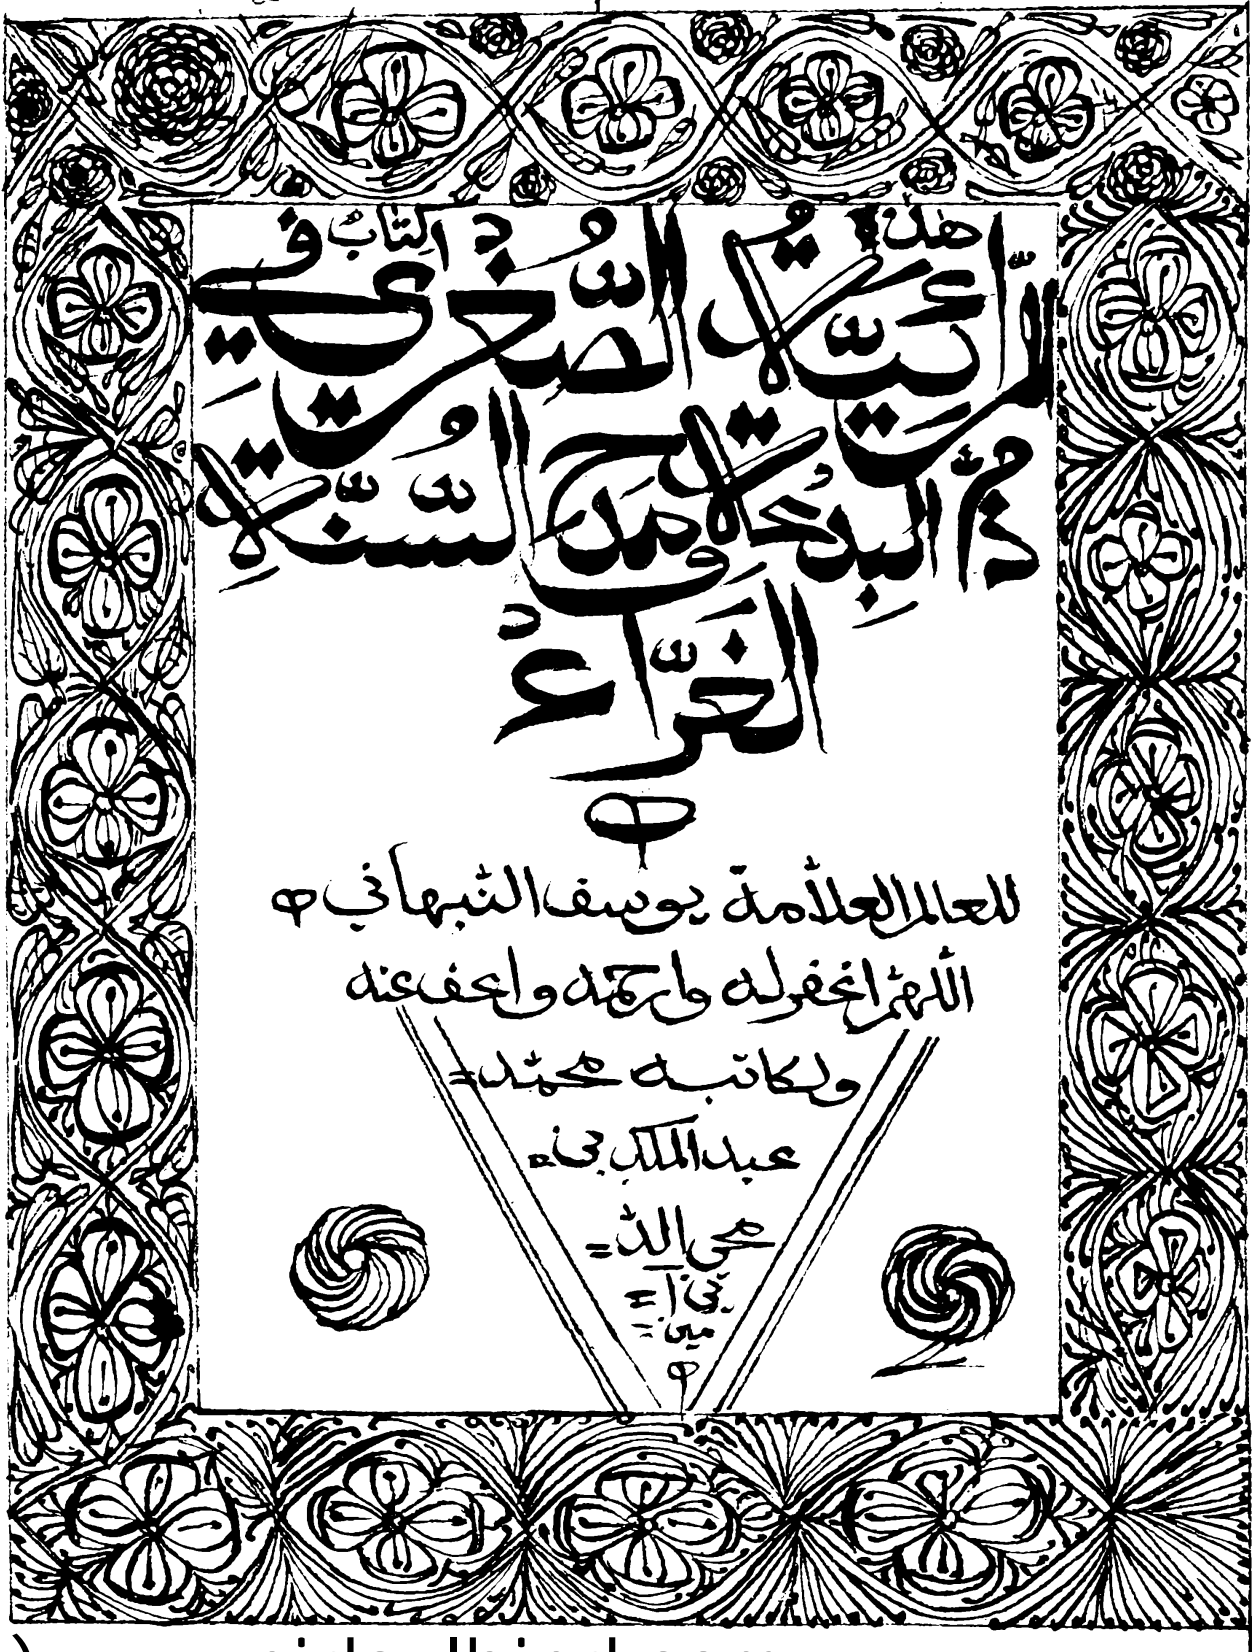 هذا الكتاب
الرّائيّة الصّغرى في
ذمّ البدعة ومدح السّنّة
الغرّاء
للعالم العلّامة يوسف النّبهاني
اللهمّ اغفر له وارحمه واعف عنه
ولكاتبه محمّد
عبد الملك بن
محي الدّ
ين آ
مين